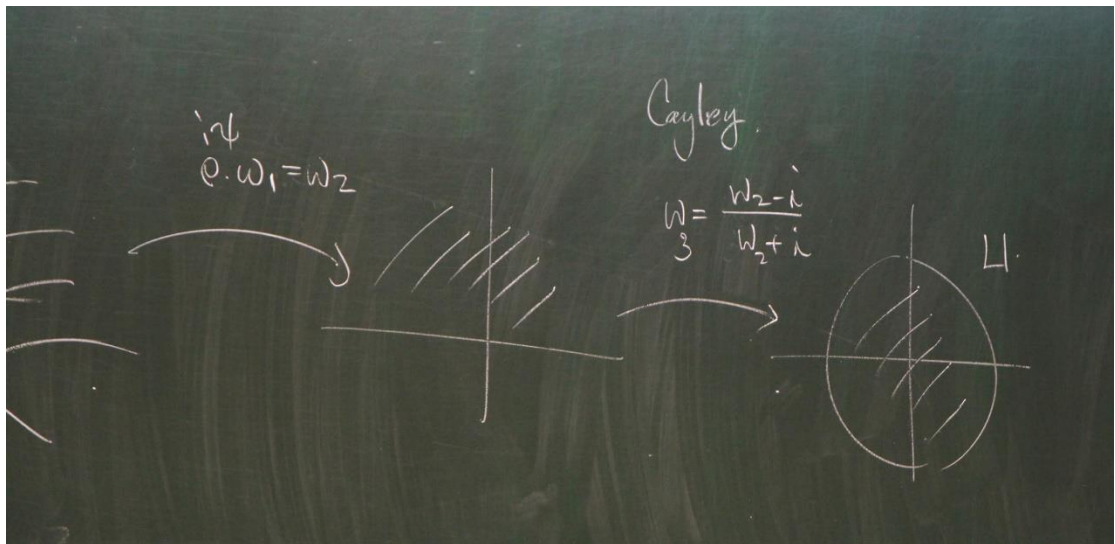 e^{iψ}·w₁=w₂
Cayley.
w₃ = \frac{w₂-i}{w₂+i}
U.